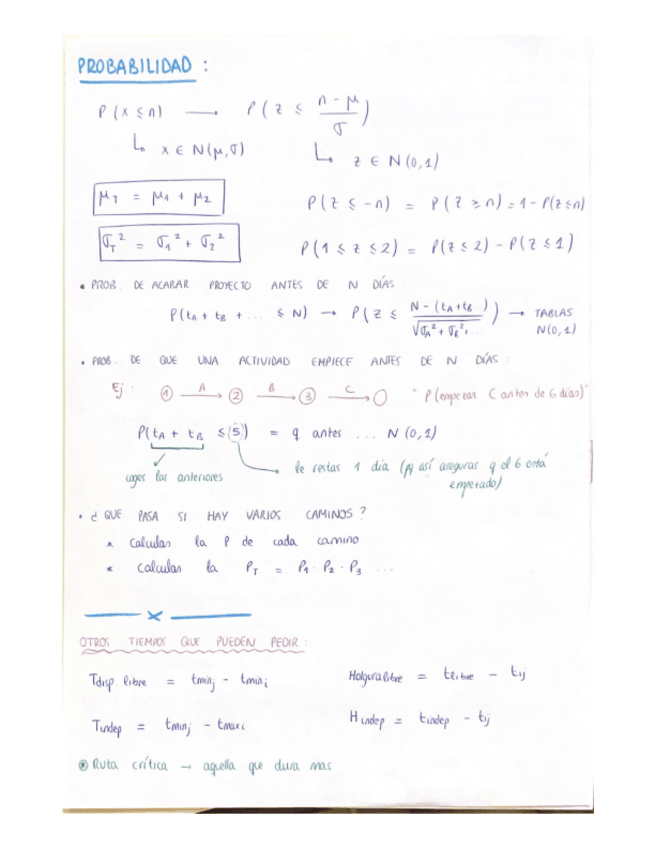 PROBABILIDAD :
P(x ≤ n) → P(z ≤ (n - μ)/σ)
↳ x ∈ N(μ,σ) ↳ z ∈ N(0,1)
μT = μ1 + μ2
P(z ≤ -n) = P(z ≥ n) = 1 - P(z ≤ n)
σT² = σ1² + σ2²
P(1 ≤ z ≤ 2) = P(z ≤ 2) - P(z ≤ 1)
• PROB. DE ACABAR PROYECTO ANTES DE N DÍAS:
P(tA + tB + ... ≤ N) → P(z ≤ (N - (tA + tB))/√(σA² + σB² + ...)) → TABLAS N(0,1)
• PROB. DE QUE UNA ACTIVIDAD EMPIECE ANTES DE N DÍAS:
Ej: ① A→ ② B→ ③ C→ ○ "P(empezar C antes de 6 días)"
P(tA + tB ≤ (5)) = q antes ... N(0,1)
coges las anteriores
le restas 1 día (pq así aseguras q el 6 está
empezado)
• ¿ QUE PASA SI HAY VARIOS CAMINOS ?
* Calculas la P de cada camino
* Calculas la PT = P1 · P2 · P3 ...
OTROS TIEMPOS QUE PUEDEN PEDIR:
Tdisp libre = tminj - tmini
Holgura libre = tlibre - tij
Tindep = tminj - tmaxi
Hindep = tindep - tij
⊛ Ruta crítica → aquella que dura mas